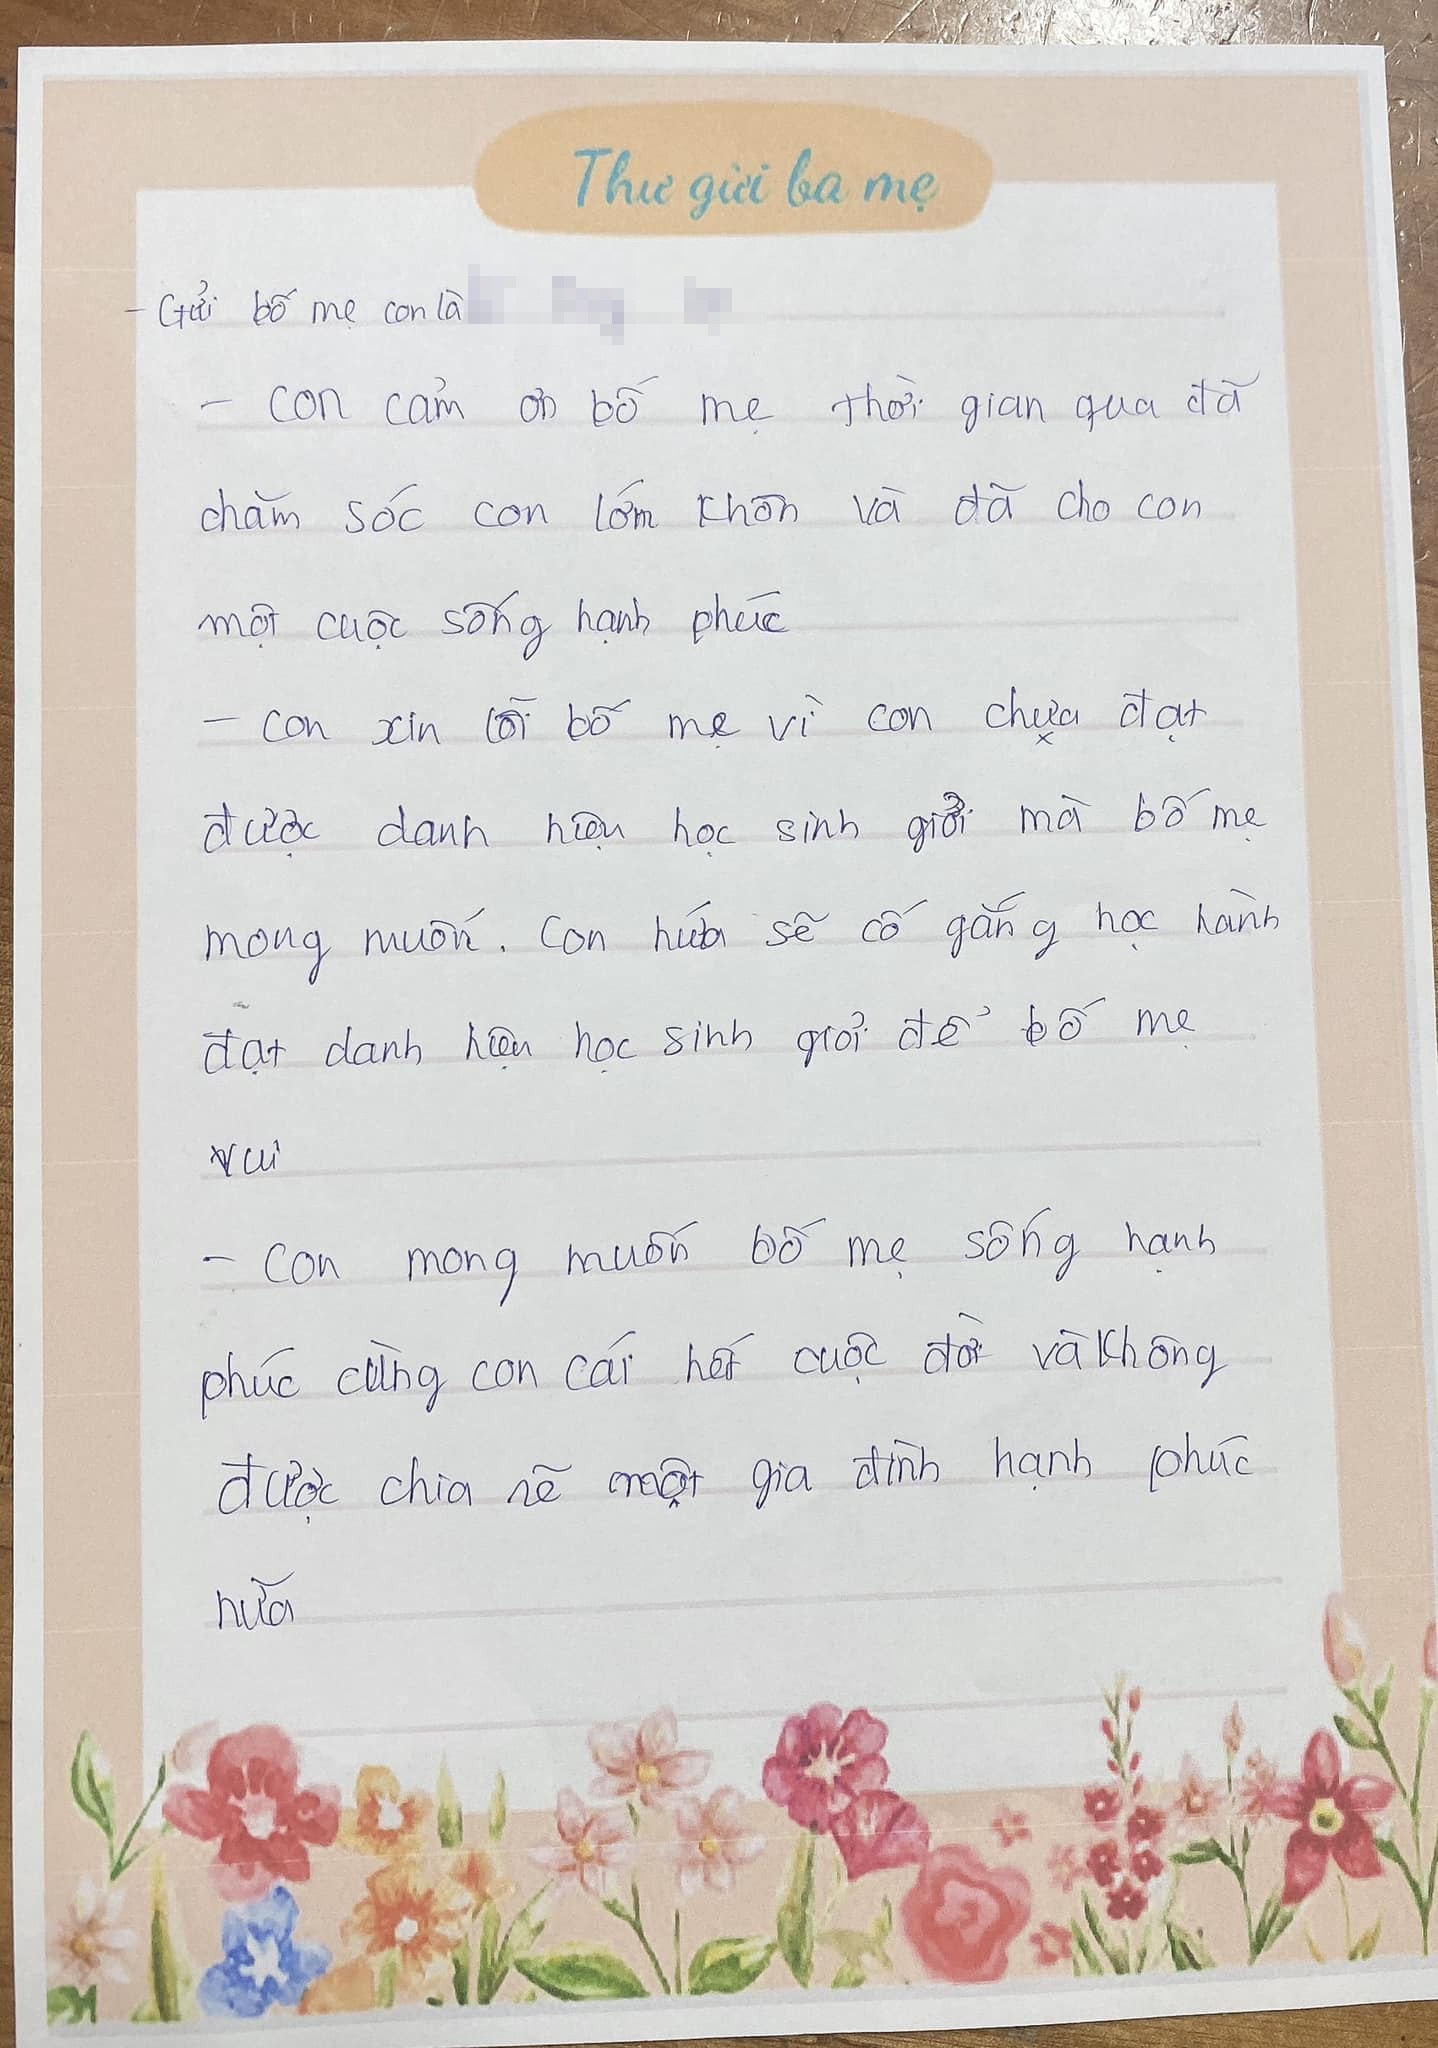 Thư gửi ba mẹ
- Gửi bố mẹ con là
- con cảm ơn bố mẹ thời gian qua đã
chăm sóc con lớm khôn và đã cho con
một cuộc sống hạnh phúc
- con xin lỗi bố mẹ vì con chưa đạt
được danh hiệu học sinh giỏi mà bố mẹ
mong muốn. Con hứa sẽ cố gắng học hành
đạt danh hiệu học sinh giỏi để bố mẹ
vui
- Con mong muốn bố mẹ sống hạnh
phúc cùng con cái hết cuộc đời và không
được chia rẽ một gia đình hạnh phúc
nữa